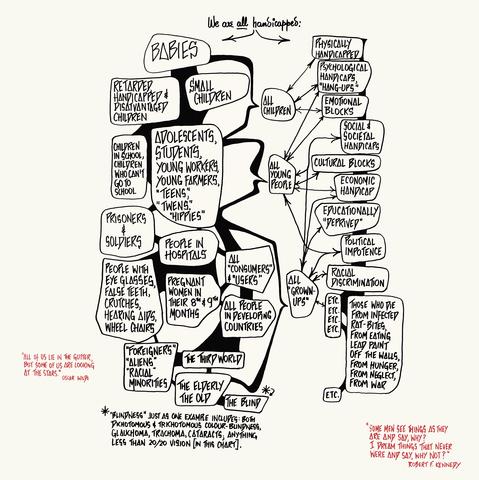 We are all handicapped:
BABIES
RETARDED,
HANDICAPPED &
DISADVANTAGED
CHILDREN
SMALL
CHILDREN
CHILDREN
IN SCHOOL,
CHILDREN
WHO CAN'T
GO TO
SCHOOL
ADOLESCENTS,
STUDENTS,
YOUNG WORKERS,
YOUNG FARMERS,
"TEENS,"
"TWENS,"
"HIPPIES"
PRISONERS
&
SOLDIERS
PEOPLE IN
HOSPITALS
PEOPLE WITH
EYE GLASSES,
FALSE TEETH,
CRUTCHES,
HEARING AIDS,
WHEEL CHAIRS
PREGNANT
WOMEN IN
THEIR 8th & 9th
MONTHS
ALL
"CONSUMERS"
& "USERS"
ALL PEOPLE
IN DEVELOPING
COUNTRIES
"FOREIGNERS"
"ALIENS"
"RACIAL
MINORITIES
THE THIRD WORLD
THE ELDERLY
THE OLD
THE BLIND
*?
ALL
CHILDREN
ALL
YOUNG
PEOPLE
ALL
"GROWN-
UPS"
PHYSICALLY
HANDICAPPED
PSYCHOLOGICAL
HANDICAPS,
"HANG-UPS"
EMOTIONAL
BLOCKS
SOCIAL &
SOCIETAL
HANDICAPS
CULTURAL BLOCKS
ECONOMIC
HANDICAP
EDUCATIONALLY
"DEPRIVED"
POLITICAL
IMPOTENCE
RACIAL
DISCRIMINATION
ETC.
ETC.
ETC.
ETC.
THOSE WHO DIE
FROM INFECTED
RAT-BITES,
FROM EATING
LEAD PAINT
OFF THE WALLS,
FROM HUNGER,
FROM NEGLECT,
FROM WAR
ETC.
"ALL OF US LIE IN THE GUTTER,
BUT SOME OF US ARE LOOKING
AT THE STARS."
OSCAR WILDE
* "BLINDNESS" JUST AS ONE EXAMPLE INCLUDES: BOTH
DICHOTOMOUS & TRICHOTOMOUS COLOUR-BLINDNESS,
GLAUKHOMA, TRACHOMA, CATARACTS, ANYTHING
LESS THAN 20/20 VISION [IN THIS CHART].
"SOME MEN SEE THINGS AS THEY
ARE AND SAY, WHY?
I DREAM THINGS THAT NEVER
WERE AND SAY, WHY NOT?"
ROBERT F. KENNEDY